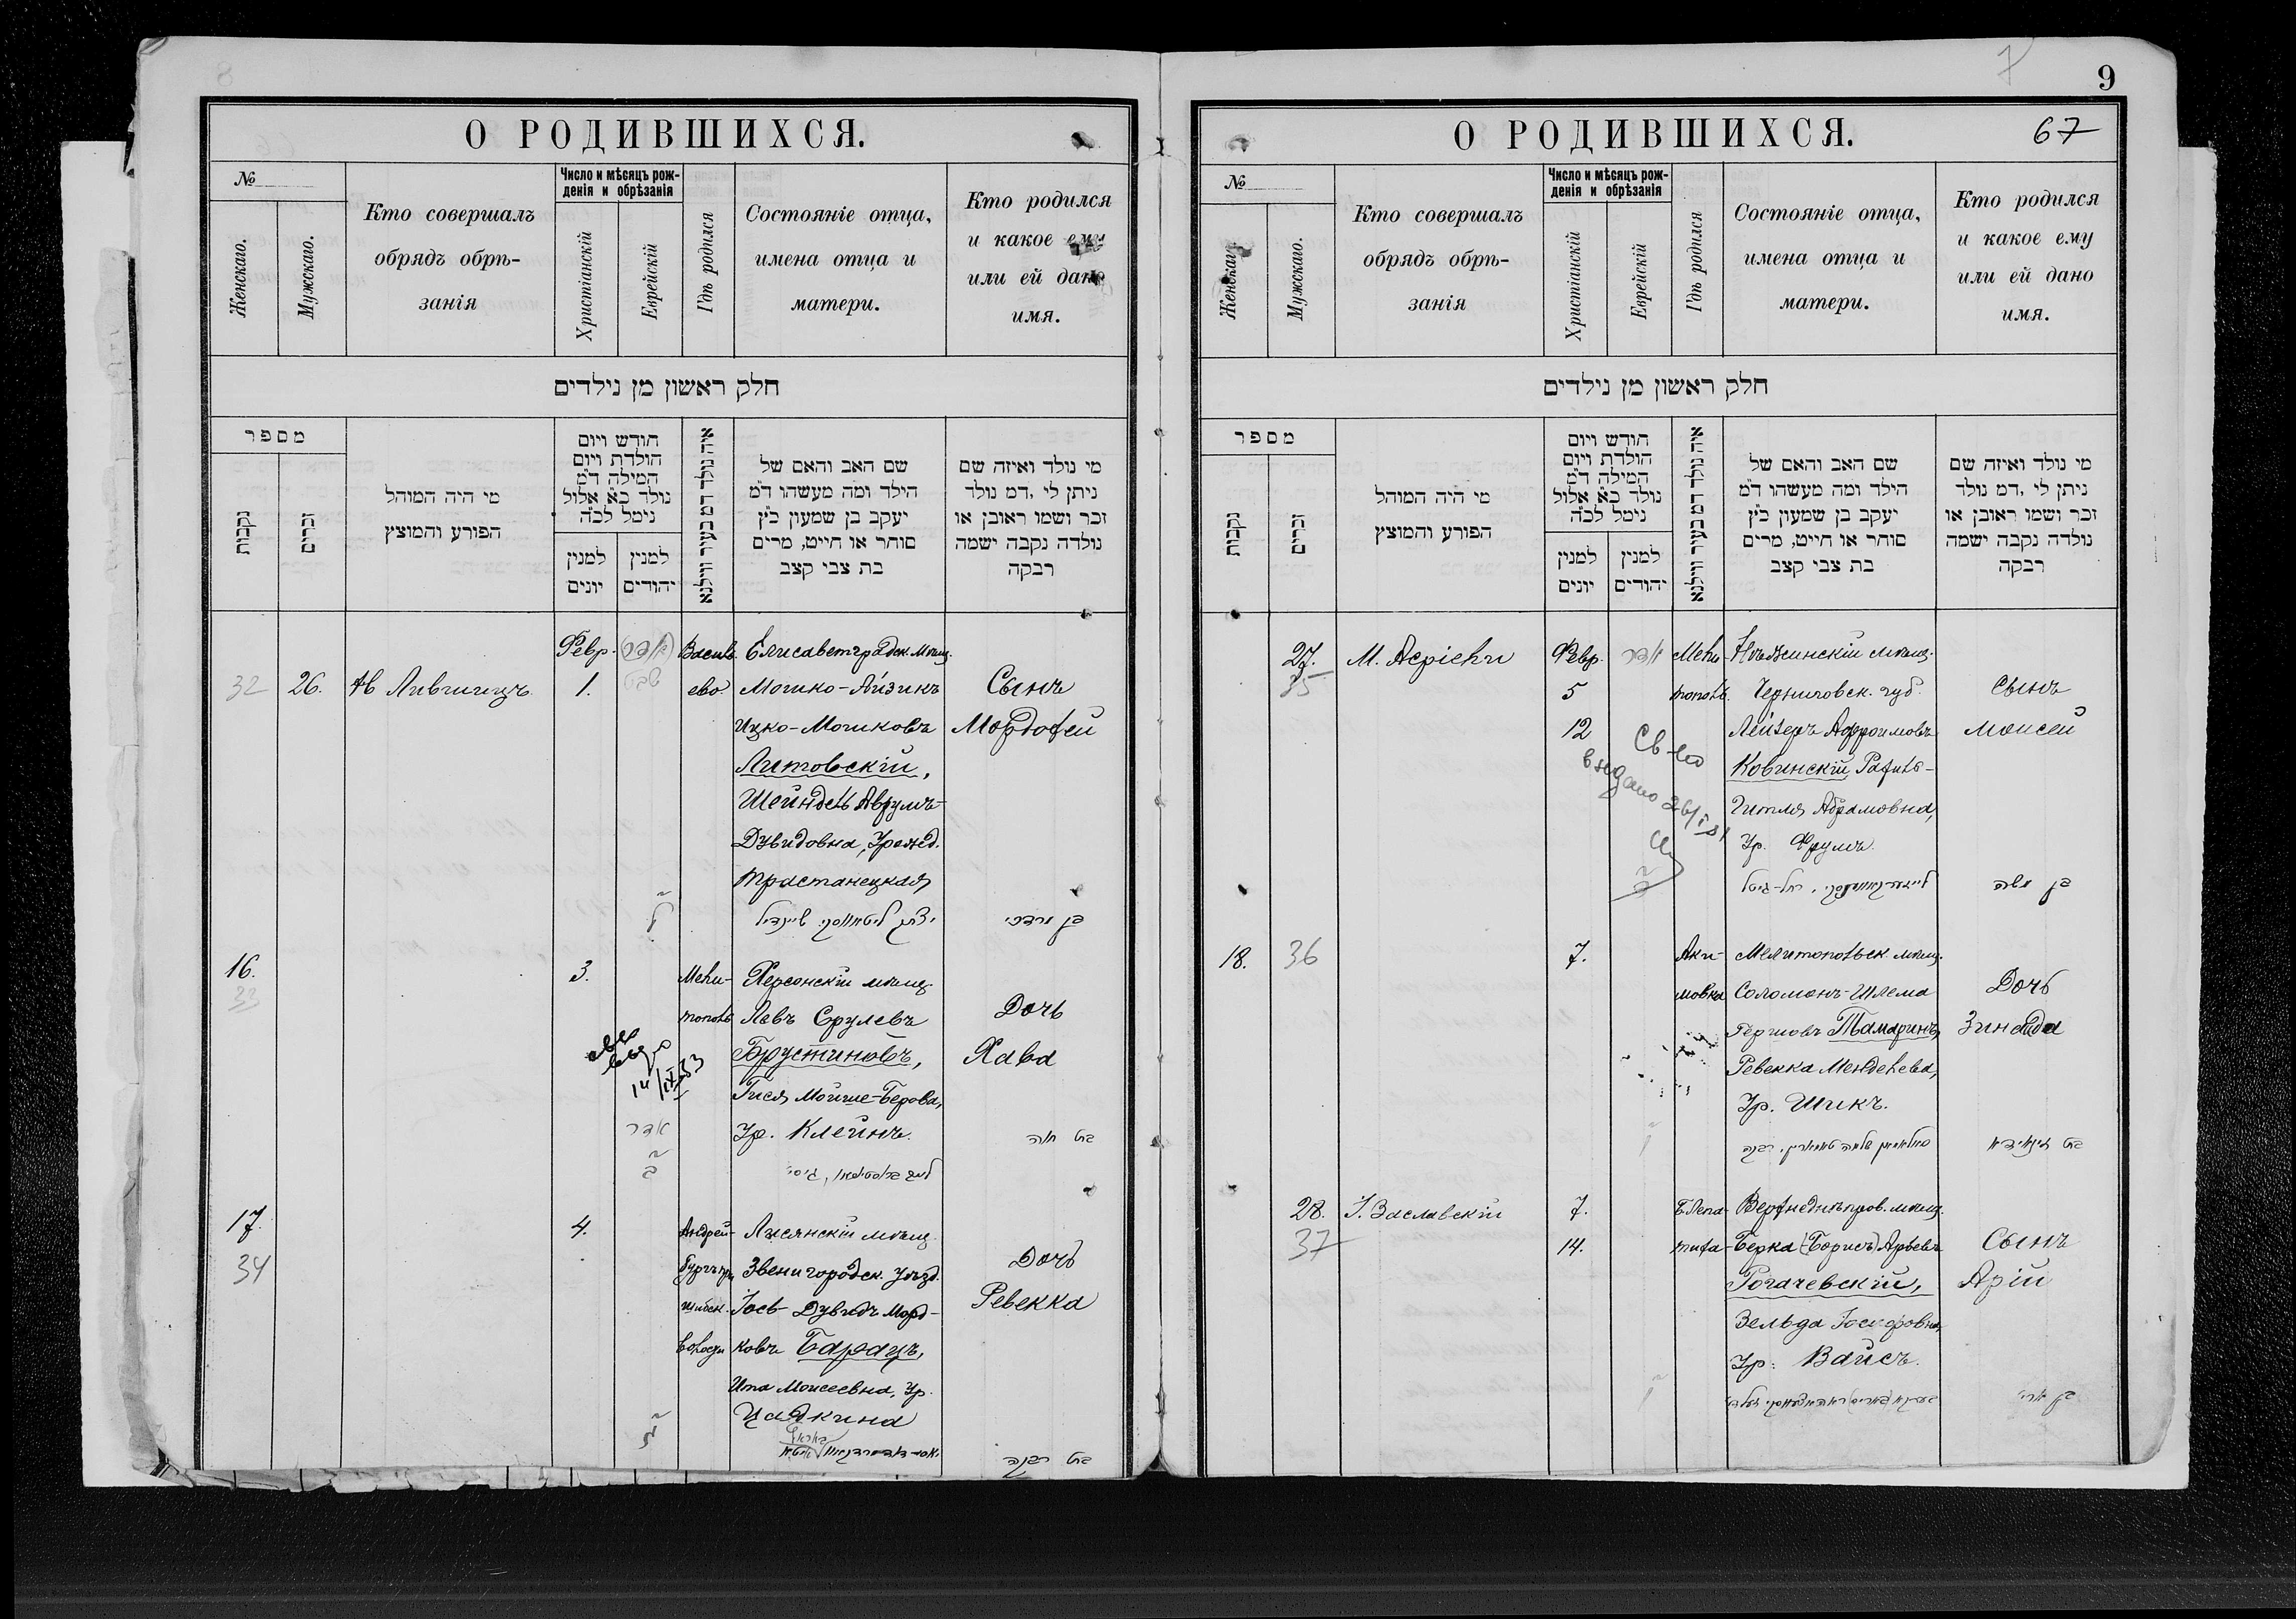 8
О РОДИВШИХСЯ.
№
Женскаго.
Мужскаго.
Кто совершалъ
обрядъ обрѣ-
занія
Число и мѣсяцъ рож-
денія и обрѣзанія
Христіанскій
Еврейскій
Гдѣ родился
Состояніе отца,
имена отца и
матери.
Кто родился
и какое ему
или ей дано
имя.
חלק ראשון מן נילדים
מספר
נקבות
זכרים
מי היה המוהל
הפורע והמוצץ
חודש ויום
הולדת ויום
המילה ד״מ
נולד כ״א אלול
נימל לכ״ה
למנין
יונים
למנין
יהודים
איה נולד דמ בעיר ווילנא
שם האב והאם של
הילד ומה מעשהו ד״מ
יעקב בן שמעון כ״ץ
סוחר או חייט, מרים
בת צבי קצב
מי נולד ואיזה שם
ניתן לי ,דמ נולד
זכר ושמו ראובן או
נולדה נקבה ישמה
רבקה
32
26.
Ливишцъ
Февр.
1.
שבט
Василь
ево.
Елисаветградск. мѣщ.
Мошко-Айзикъ
Ицко-Мошковъ
Литовскій,
Шейндель Аврумъ-
Дувидовна, Урожд.
Трастанецкая
Сынъ
Мордохей
בן מרדכי
16.
33
3.
Мели-
тополь
14/IX 33
אדר
Херсонскій мѣщ.
Левъ Срулевъ
Брустиновъ,
Гися Мойше-Берова,
Ур. Клейнъ.
Дочь
Хава
בת חוה
17.
34
4.
Андрей-
Лисянскій мѣщ.
Звенигородск. уѣзд.
Іосъ-Дувидъ Морд-
ковъ Барацъ,
Ита Моисеевна, Ур.
Цаткина
Дочь
Ревекка
בת רבקה
7
9
О РОДИВШИХСЯ.
67
№
Женскаго
Мужскаго.
Кто совершалъ
обрядъ обрѣ-
занія
Число и мѣсяцъ рож-
денія и обрѣзанія
Христіанскій
Еврейскій
Гдѣ родился
Состояніе отца,
имена отца и
матери.
Кто родился
и какое ему
или ей дано
имя.
חלק ראשון מן נילדים
מספר
נקבות
זכרים
מי היה המוהל
הפורע והמוצץ
חודש ויום
הולדת ויום
המילה ד״מ
נולד כ״א אלול
נימל לכ״ה
למנין
יונים
למנין
יהודים
איה נולד דמ בעיר ווילנא
שם האב והאם של
הילד ומה מעשהו ד״מ
יעקב בן שמעון כ״ץ
סוחר או חייט, מרים
בת צבי קצב
מי נולד ואיזה שם
ניתן לי ,דמ נולד
זכר ושמו ראובן או
נולדה נקבה ישמה
רבקה
27.
35
М. Асріели
Февр.
5
12
אדר
Мели-
тополь.
Св-во
выдано 26/
Нѣжинскій мѣщ.
Черниговск. губ.
Лейзеръ Афроимовъ
Ковинскій, Рахиль-
Гитля Абрамовна,
Ур. Фрумъ.
Сынъ
Моисей
בן משה
18.
36
7.
Аки-
мовка
Мелитопольск. мѣщ.
Соломонъ-Шлема
Гершовъ Тамаринъ,
Ревекка Менделева,
Ур. Шикъ.
Дочь
Зинаида
בת זינאידא
28.
37
I. Заславскій
7.
14.
Б. Лепа-
тиха
Верхнеднѣпров. мѣщ.
Берка (Борисъ) Арьевъ
Рогачевскій,
Зельда Іосифовна,
Ур. Вайсъ.
Сынъ
Арій
בן ארי